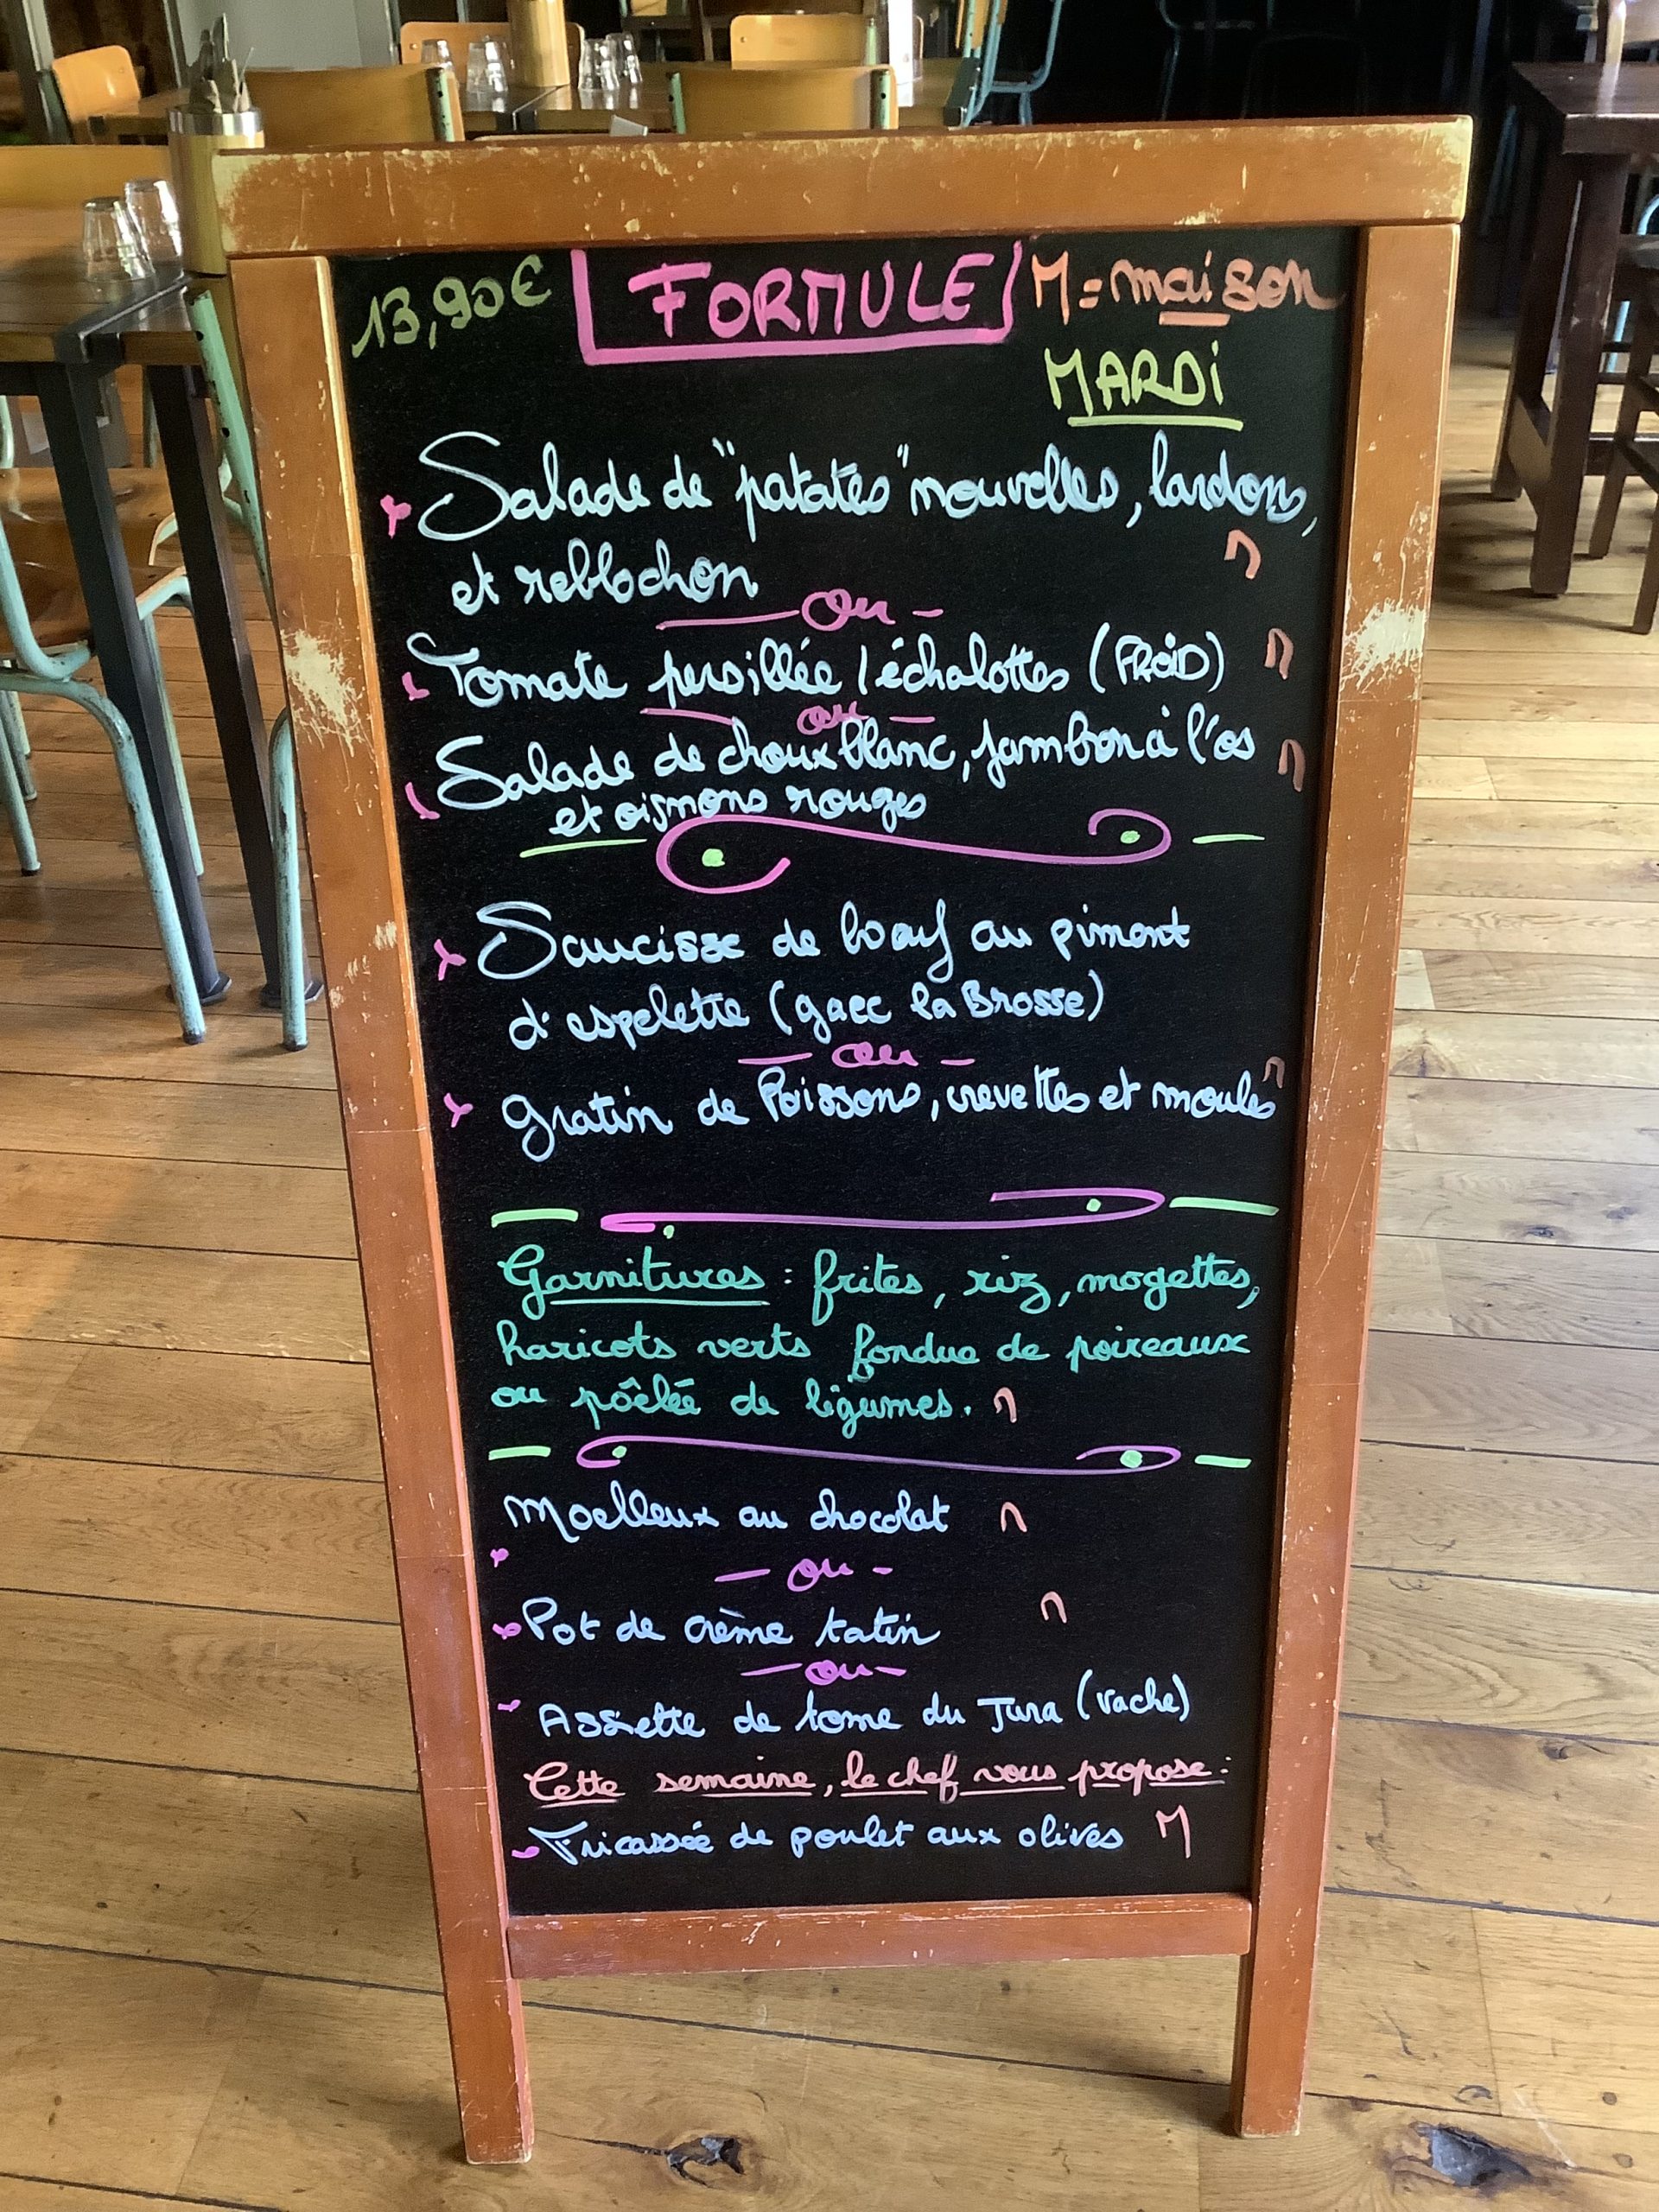 13,90€ FORMULE M = maison
MARDI
Salade de "patates" nouvelles, lardons,
et reblochon M
— ou —
Tomate persillée / échalottes (FROID) M
— ou —
Salade de choux blanc, jambon à l'os M
et oignons rouges
Saucisse de boeuf au piment
d'espelette (gaec la Brosse)
— ou —
gratin de Poissons, crevettes et moules M
Garnitures : frites, riz, mogettes,
haricots verts fondue de poireaux
ou pôêlée de légumes. M
Moelleux au chocolat M
— ou —
Pot de crème tatin M
— ou —
Assiette de tome du Jura (vache)
Cette semaine, le chef vous propose :
Fricassée de poulet aux olives M